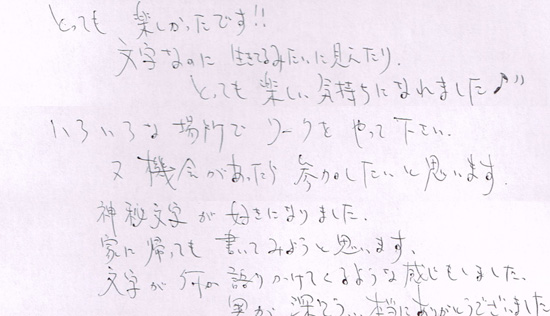 とっても 楽しかったです!!
文字なのに 生きてるみたいに見えたり、
とっても 楽しい 気持ちになれました♪
いろいろな 場所で ワークを やって 下さい.
又 機会があったら 参加したいと思います.
神秘文字が 好きになりました.
家に 帰っても 書いてみようと思います.
文字が 何か 語りかけてくるような 感じもしました.
奥が 深そう… 本当にありがとうございました